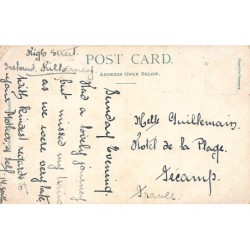 High Street.
Ireland. Killarney
POST CARD.
ADDRESS ONLY BELOW.
Sunday Evening.
Had a lovely journey
but missed my
as we were very late
with kindest regards to
your Mother & self
Melle Guillemain
Hotel de la Plage.
Fecamp.
France.